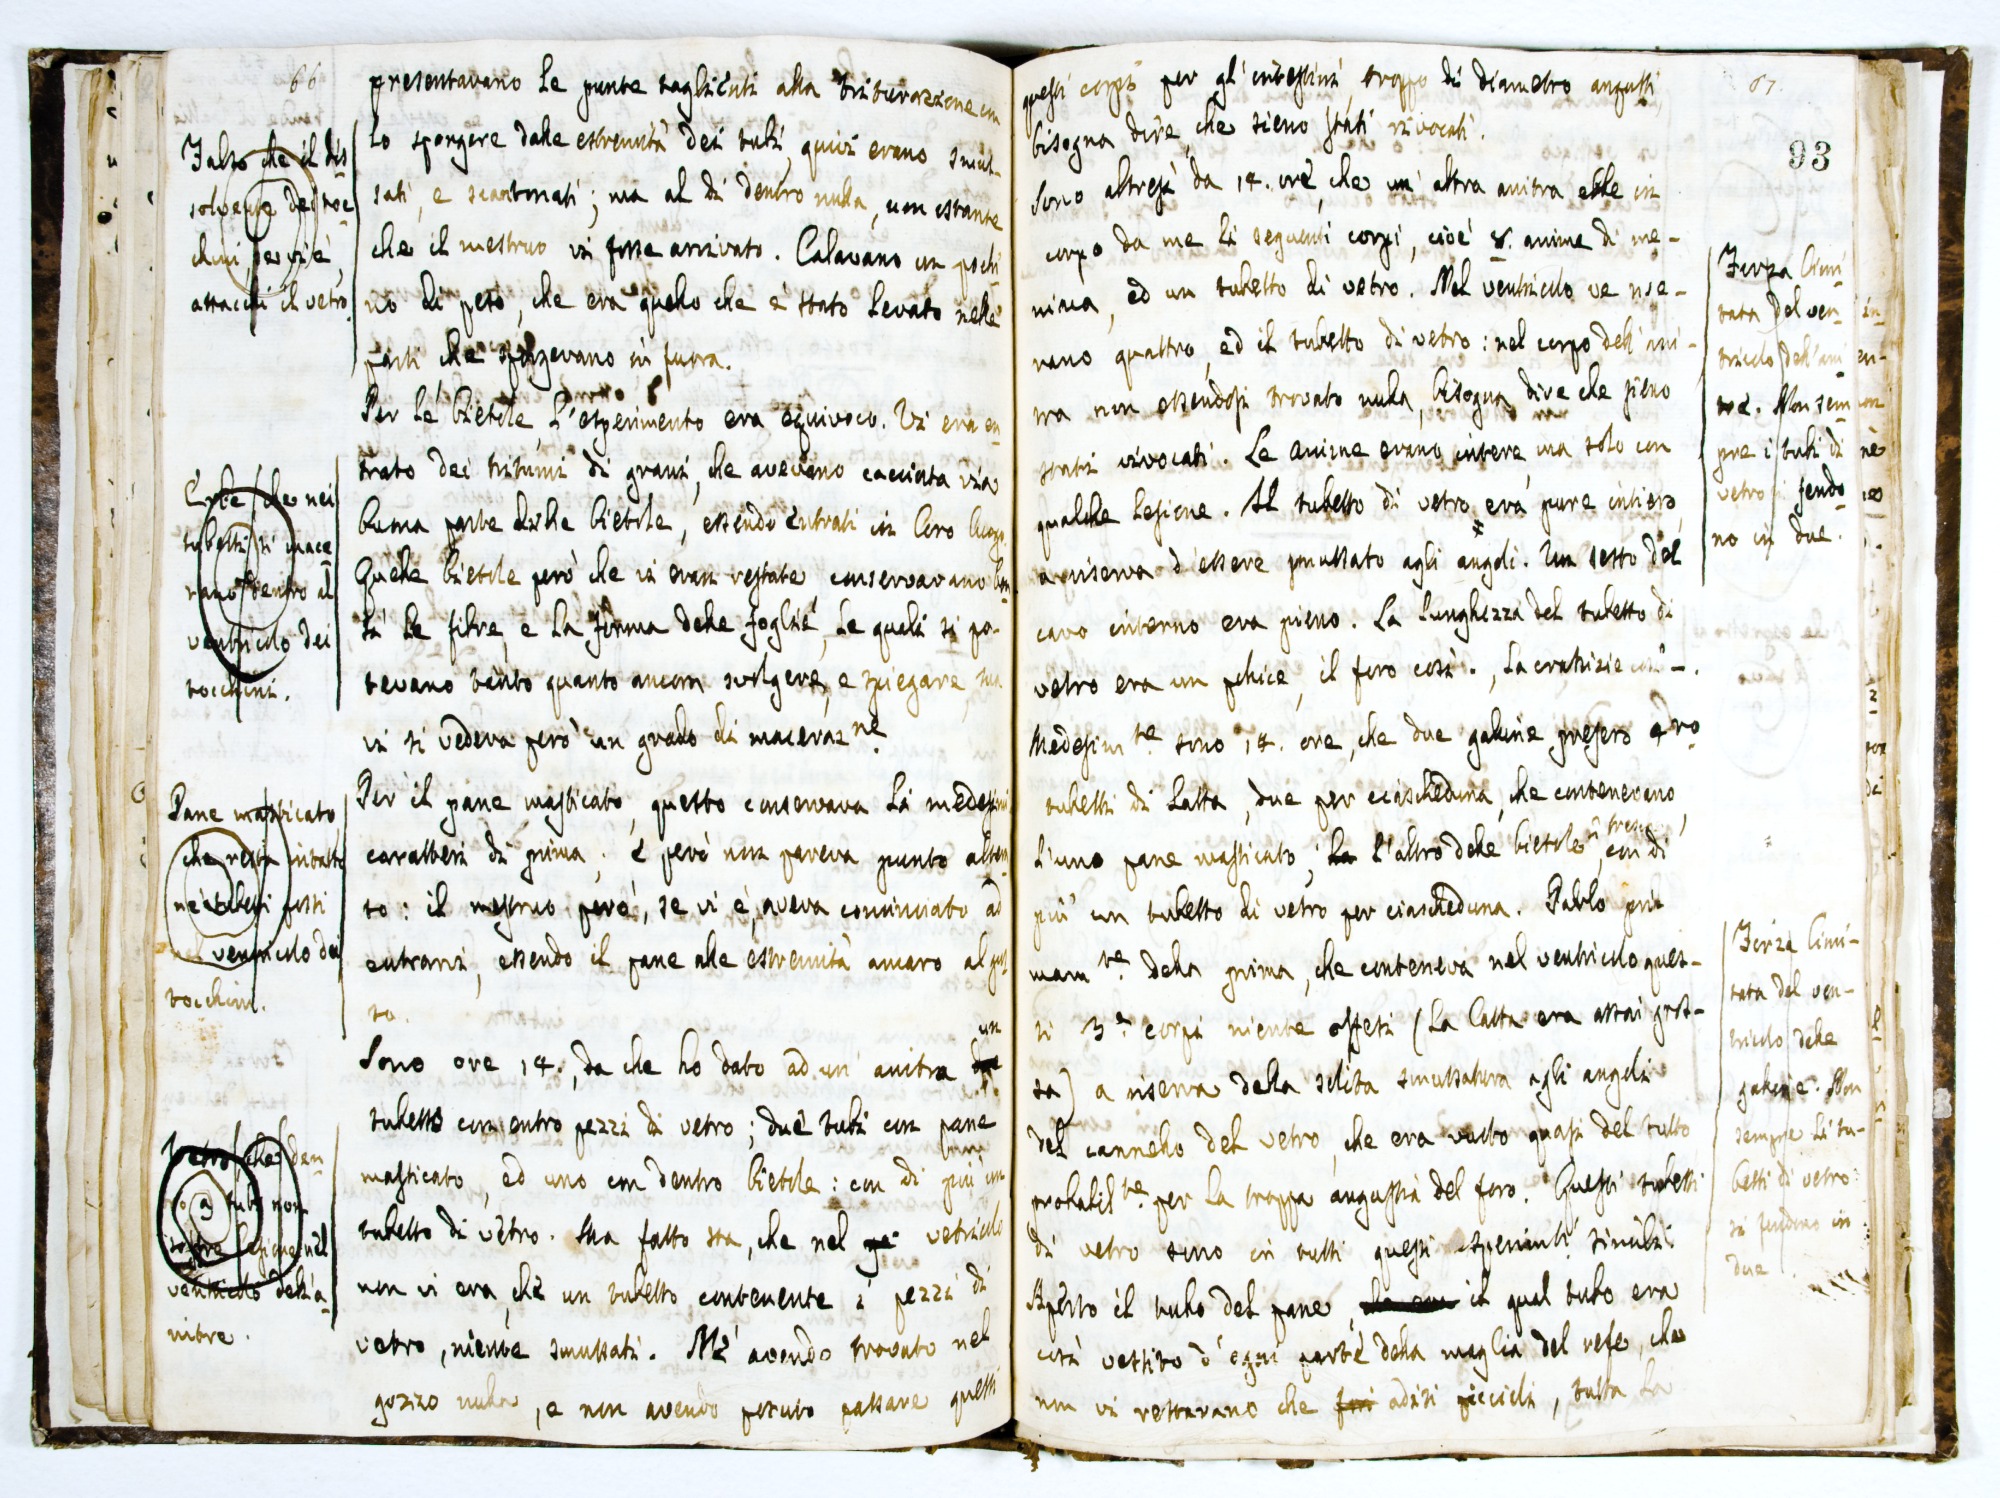 66
presentavano le punte taglienti alla triturazione con
lo sporgere dalle estremità dei tubi, quivi erano smus-
sati, e scantonati; ma al di dentro nulla, non ostante
che il mestruo vi fosse arrivato. Calavano un pochi
no di peso, che era quello che è stato levato nelle
parti che sporgevano in fuora.
Per le bietole, l'esperimento era equivoco. Vi era en
trato dei tritumi di grani, che avevano cacciata via
buona parte delle bietole, essendo entrati in loro luogo.
Quelle bietole però che vi eran restate, conservavano
le fibre, e la forma delle foglie, le quali si po-
tevano tanto quanto ancora svolgere, e spiegare,
vi si vedeva però un grado di maceraz.ne
Per il pane masticato, questo conservava li medesimi
caratteri di prima, e però non pareva punto
to: il mestruo però, se vi è, aveva cominciato ad
entrarvi, essendo il pane alle estremità amaro al gus
to.
Sono ore 14., da che ho dato ad un' anitra un
tubetto con entro pezzi di vetro; due tubi con pane
masticato, ed uno con dentro bietole: con di più un
tubetto di vetro. Ma fatto sta, che nel vetricolo
non vi era, che un tubetto contenente i pezzi di
vetro, niente smussati. Nè avendo trovato nel
gozzo nulla, e non avendo potuto passare questi
Falso che il dis
solvente dei toc
chini, se vi è,
attacchi il vetro.
Erbe che nei
tubetti si mace
rano dentro al
ventricolo dei
tocchini.
Pane masticato,
che resta intatto
ne' tubetti posti
nel ventricolo dei
tocchini.
Vetro, che den
tro a tubi non
soffre lesione nel
ventricolo dell'a-
nitre.
67.
93
questi corpi per gl'intestini, troppo di diametro angusti,
bisogna dire, che sieno stati rivocati.
Sono altresì da 14. ore, che un' altra anitra ebbe in
corpo da me li seguenti corpi, cioè 8. anime di me-
ninca, ed un tubetto di vetro. Nel ventricolo ve n'e-
rano quattro, ed il tubetto di vetro: nel corpo dell'ani-
tra non essendosi trovato nulla, bisogna dire che sieno
stati rivocati. Le anime erano intere, ma solo con
qualche lesione. Il tubetto di vetro era pure intiero,
a riserva d'essere smussato agli angoli. Un sesto del
cavo interno era pieno. La lunghezza del tubetto di
vetro era un pollice, il foro così ., la crassizie così –.
Medesim.te sono 14. ore, che due galline presero 4.ro
tubetti di latta, due per ciascheduna, che contenevano,
l'uno pane masticato, l'altro delle bietole, con di
più un tubetto di vetro per ciascheduna. Parlo pri
mam.te della prima, che conteneva nel ventricolo ques-
ti 3. corpi niente offesi (la latta era assai gros-
sa) a riserva della solita smussatura agli angoli
del cannello del vetro, che era vuoto quasi del tutto
probabil.te per la troppa angustia del foro. Questi tubetti
di vetro sono in tutti questi sperimenti simili.
Aperto il tubo del pane, il qual tubo era
così vestito d'ogni parte della maglia del refe, che
non vi restavano che aditi piccioli, tutta la
Forza limi
tata del ven-
tricolo dell'ani
tre. Non sem
pre i tubi di
vetro si fendo
no in due.
Forza limi-
tata del ven-
tricolo delle
galline. Non
sempre li tu-
betti di vetro
si fendono in
due